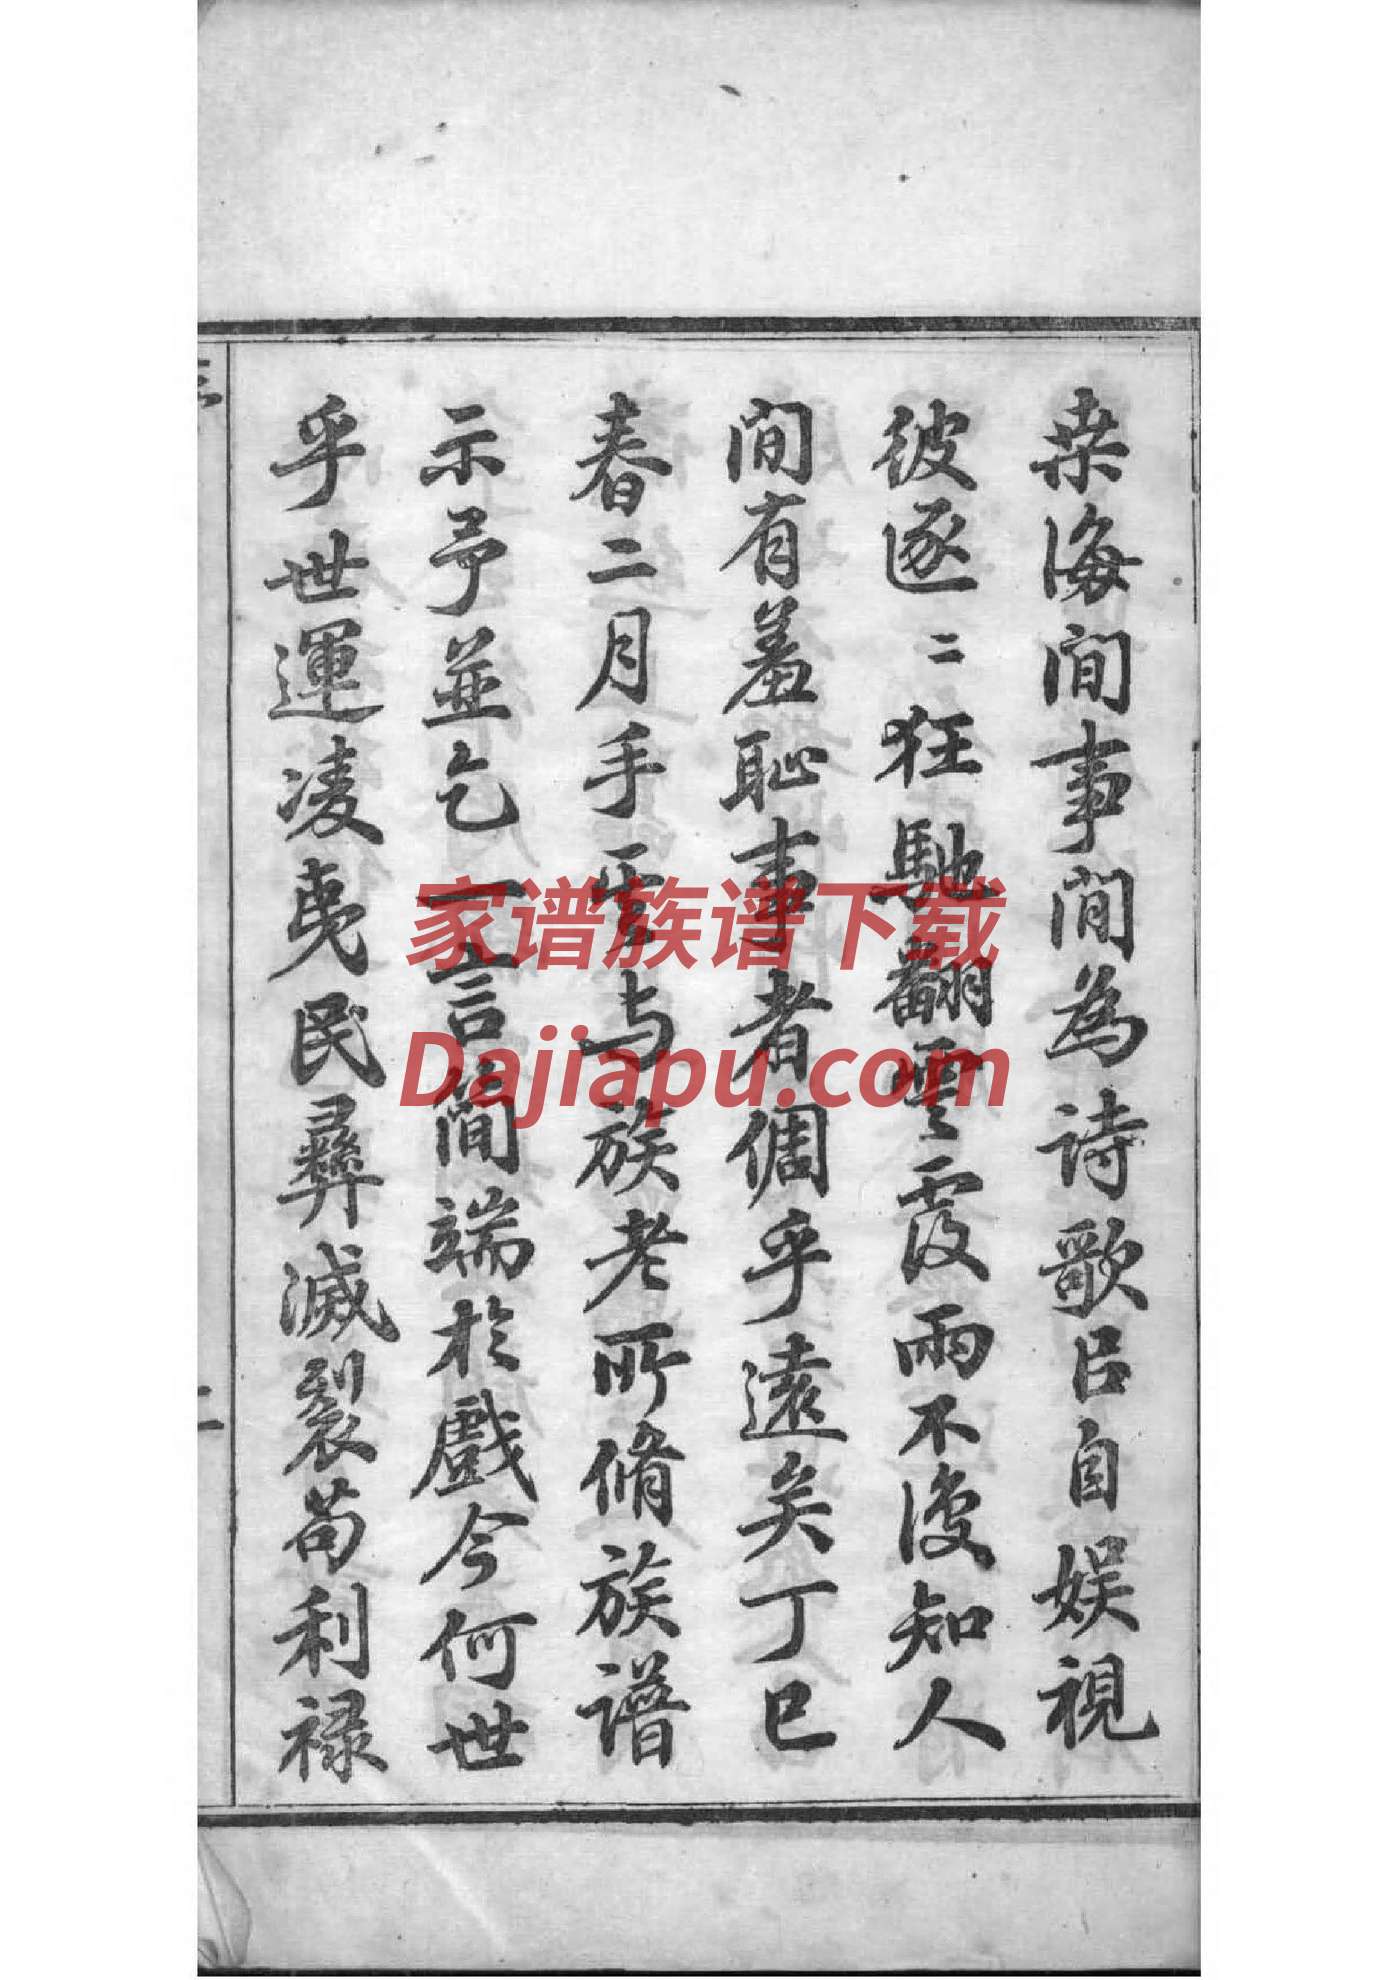 桒海間事間為詩歌㠯自娯視
彼逐二狂馳翻雲霞雨不復知人
間有羞恥事者倜乎遠矣丁巳
春二月手雲与族老所脩族譜
示予並乞一言簡端於戲今何世
乎世運凌夷民彝滅裂苟利祿
二
家谱族谱下载
Dajiapu.com